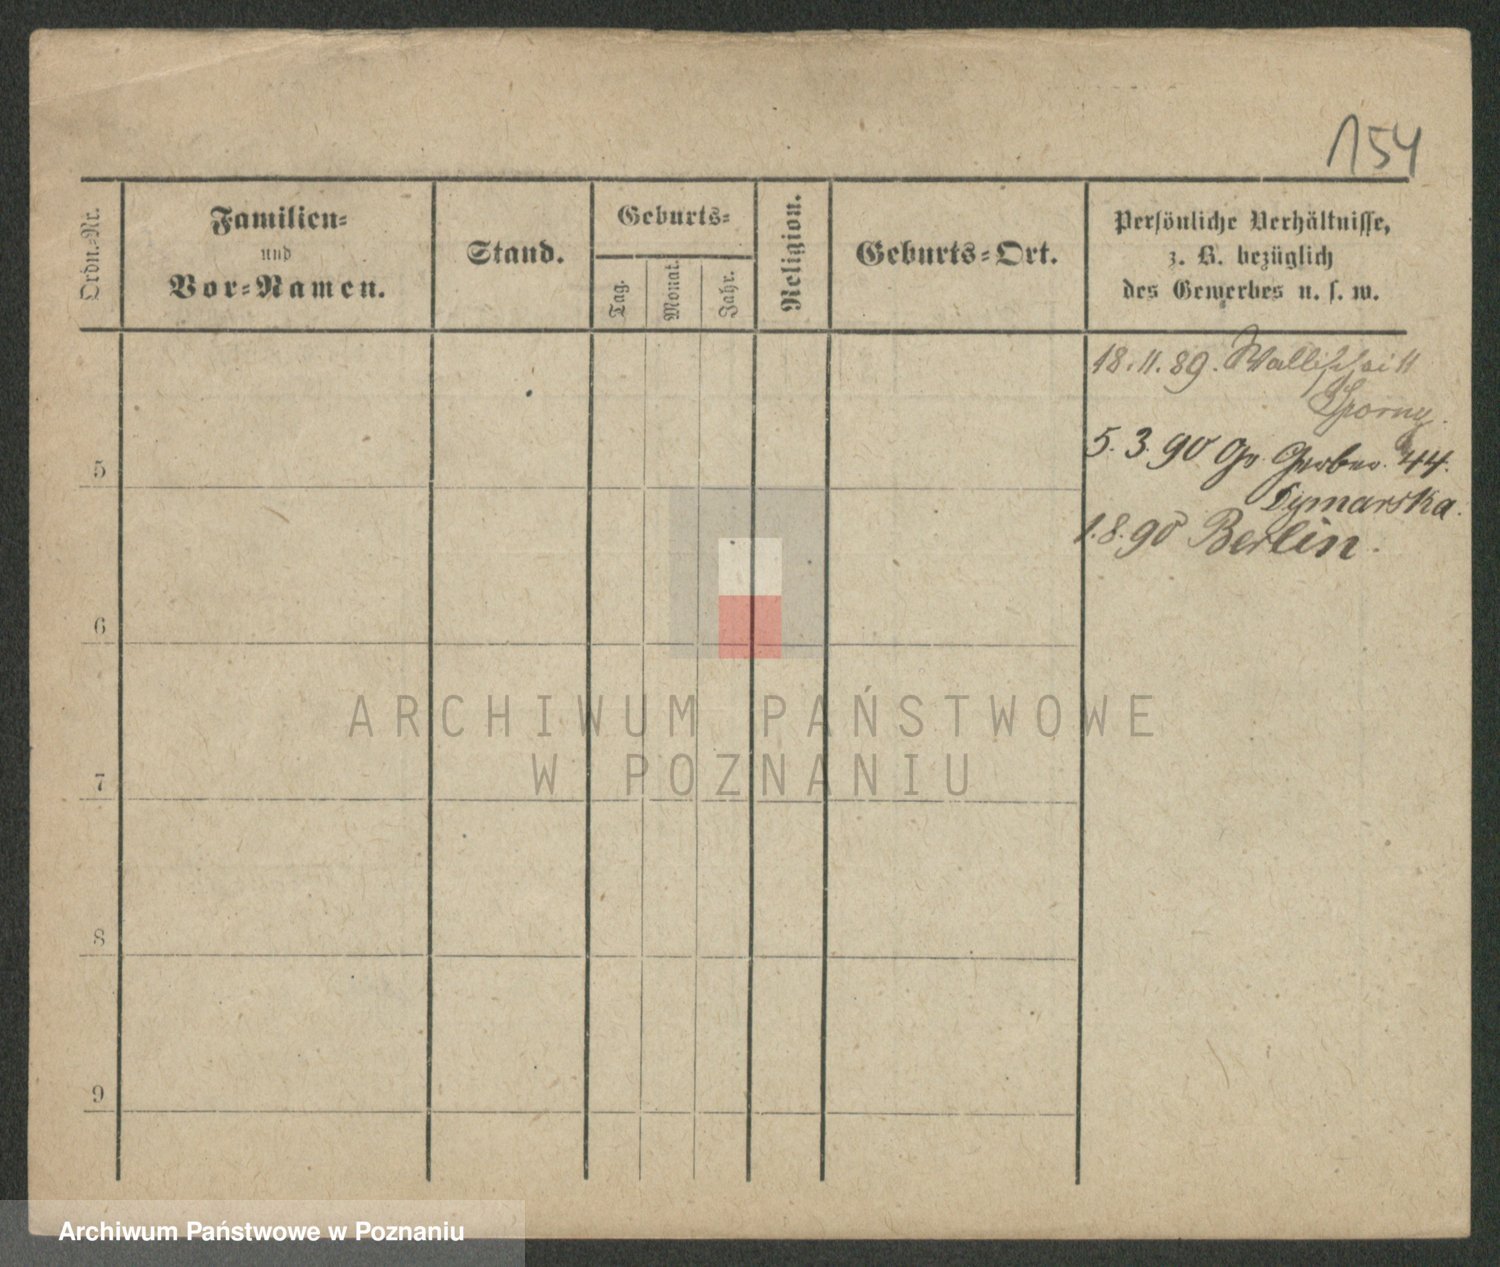 154
Ordn.-Nr.
Familien-
und
Vor-Namen.
Stand.
Geburts-
Tag.
Monat.
Jahr.
Religion.
Geburts-Ort.
Persönliche Verhältnisse,
z. B. bezüglich
des Gewerbes u. s. w.
18. 11. 89. Wallischei 11
5. 3. 90 Gr. Gerber. 44.
Dymarska.
1. 8. 90 Berlin.
5
6
7
8
9
ARCHIWUM PAŃSTWOWE
W POZNANIU
Archiwum Państwowe w Poznaniu